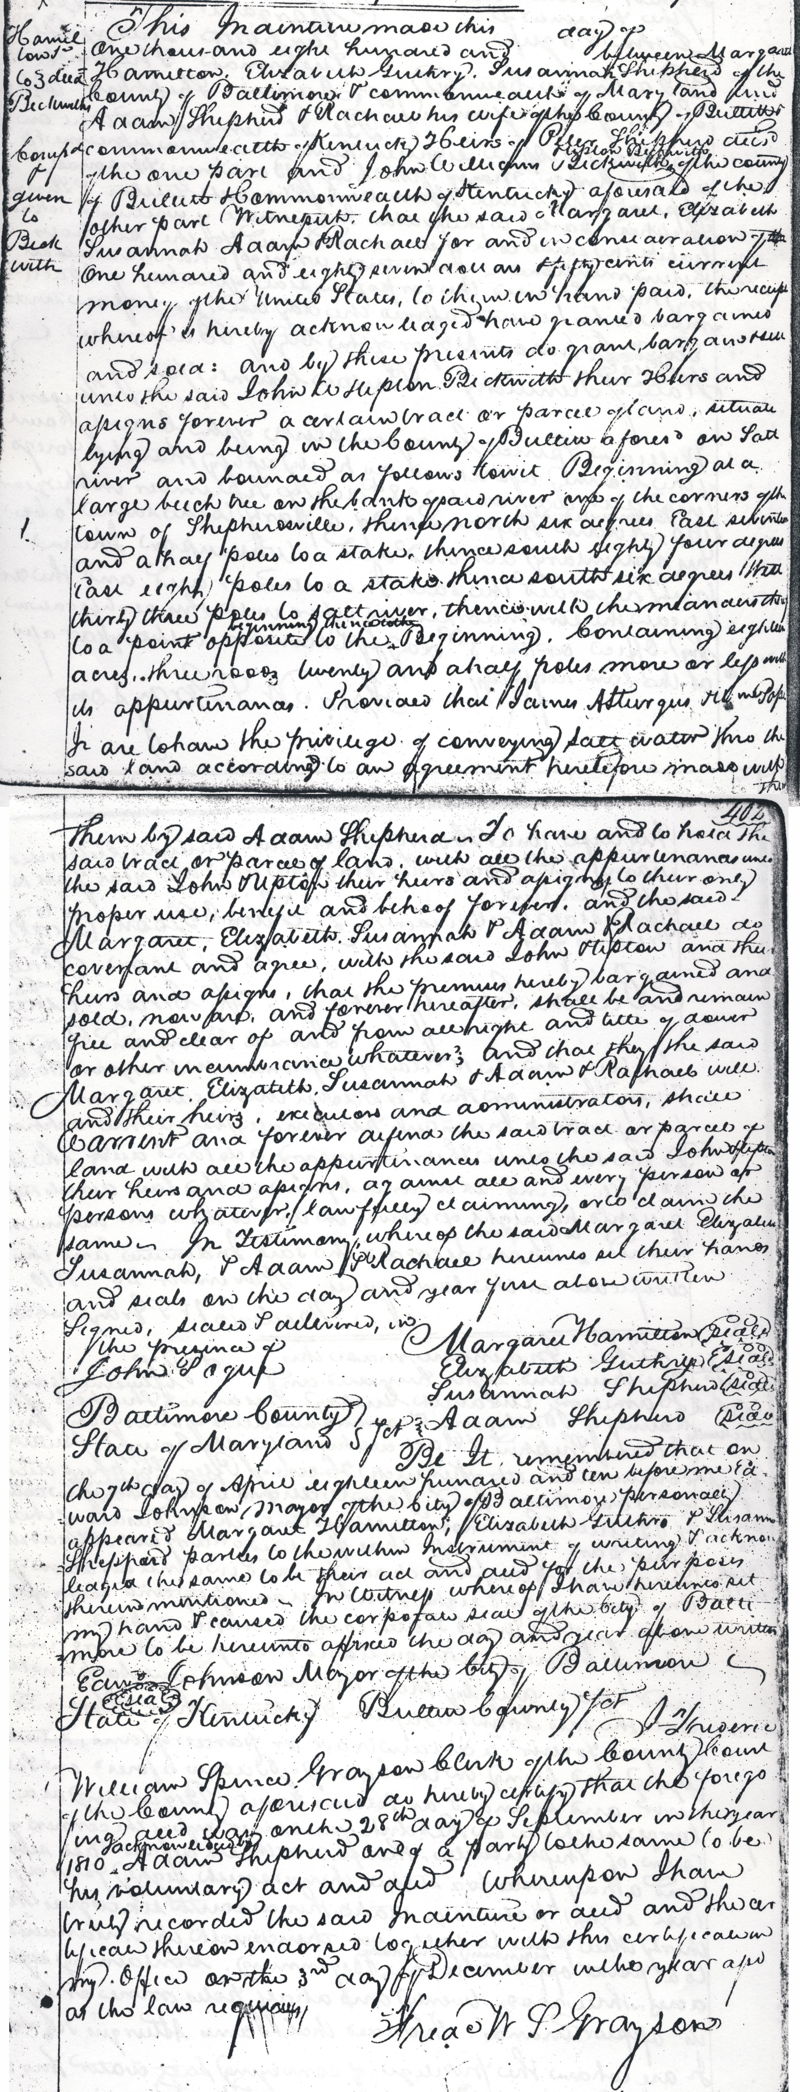 Hamil
tons
to } deed
Beckwiths
Comp'd
&
given
to
Beck
with
This Indenture made this day of
One thousand eight hundred and between Margaret
Hamilton, Elizabeth Guthry, Susannah Shepherd of the
County of Baltimore & commonwealth of Maryland and
Adam Shepherd & Rachael his wife of the County of Bullitt &
commonwealth of Kentucky Heirs of Peter Shepherd dec'd
of the one part and John Williams & Upton Beckwith of the county
of Bullitt & Commonwealth of Kentucky aforesaid of the
other part Witnesseth, that the said Margaret, Elizabeth
Susannah Adam & Rachael for and in consideration of
One hundred and eighty seven dollars & fifty cents current
money of the United States, to them in hand paid, the receipt
whereof is hereby acknowledged have granted bargained
and sold: and by these presents do grant, bargain & sell
unto the said John & Upton Beckwith their Heirs and
assigns forever a certain tract or parcel of land, situate
lying and being in the County of Bullitt aforesd on Salt
river and bounded as follows towit Beginning at a
large beech tree on the bank of said river one of the corners of the
town of Shepherdsville, thence north six degrees East seventeen
and a half poles to a stake, thence south eighty four degrees
East eighty poles to a stake thence south six degrees West
thirty three poles to salt river, thence with the meanders thereof
to a point opposite to the beginning thence to the Beginning, Containing eighteen
acres, three roods twenty and a half poles more or less with
its appurtenances. Provided that James A Sturgus & Wm Pope
Jr are to have the privilege of conveying salt water thro the
said land according to an agreement heretofore made with
them
404
them by said Adam Shepherd. To have and to hold the
said tract or parcel of land, with all the appurtenances unto
the said John & Upton their heirs and assigns to their only
proper use, benefit and behoof forever, and the said
Margaret, Elizabeth, Susannah & Adam & Rachael do
covenant and agree, with the said John & Upton and their
heirs and assigns, that the premises hereby bargained and
sold, now are, and forever hereafter, shall be and remain
free and clear of and from all right and title of dower
or other incumbrance whatever; and that they the said
Margaret, Elizabeth, Susannah & Adam & Rachael will
and their heirs, executors and administrators, shall
Warrent and forever defend the said tract or parcel of
land with all the appurtinances unto the said John & Upton
their heirs and assigns, against all and every person or
persons whatever, lawfully claiming, or to claim the
same. In Testimony, whereof the said Margaret Elizabeth
Susannah, & Adam & Rachael hereunto set their hands
and seals on the day and year first above written
Signed, sealed & delivered, in
the presence of
John Pogue
Margaret Hamilton (seal)
Elizabeth Guthrie (seal)
Susannah Shepherd (seal)
Adam Shepherd (seal)
Baltimore County }
State of Maryland } Sct
Be It remembered that on
the 7th day of April eighteen hundred and ten before me Ed-
ward Johnson, Mayor of the City of Baltimore personally
appeared Margaret Hamilton, Elizabeth Guthro & Susanna
Sheppard parties to the within Instrument of writing & acknow
ledged the same to be their act and deed for the purposes
therein mentioned. In Witness whereof I have hereunto set
my hand & caused the corporate seal of the City of Balti
more to be hereunto affixed the day and year above written
Edwd Johnson Mayor of the City of Baltimore
(seal)
State of Kentucky Bullitt County Sct
I Frederic
William Spence Grayson Clerk of the County Court
of the County aforesaid do hereby certify that the forego
ing deed was on the 28th day of September in the year
1810 acknowledged by Adam Shepherd one of a party to the same to be
his voluntary act and deed Whereupon I have
truly recorded the said Indenture or deed and the cer
tificate thereon endorsed together with this certificate in
my Office on the 3rd day of December in the year afsd
as the law requires
Fred W S Grayson